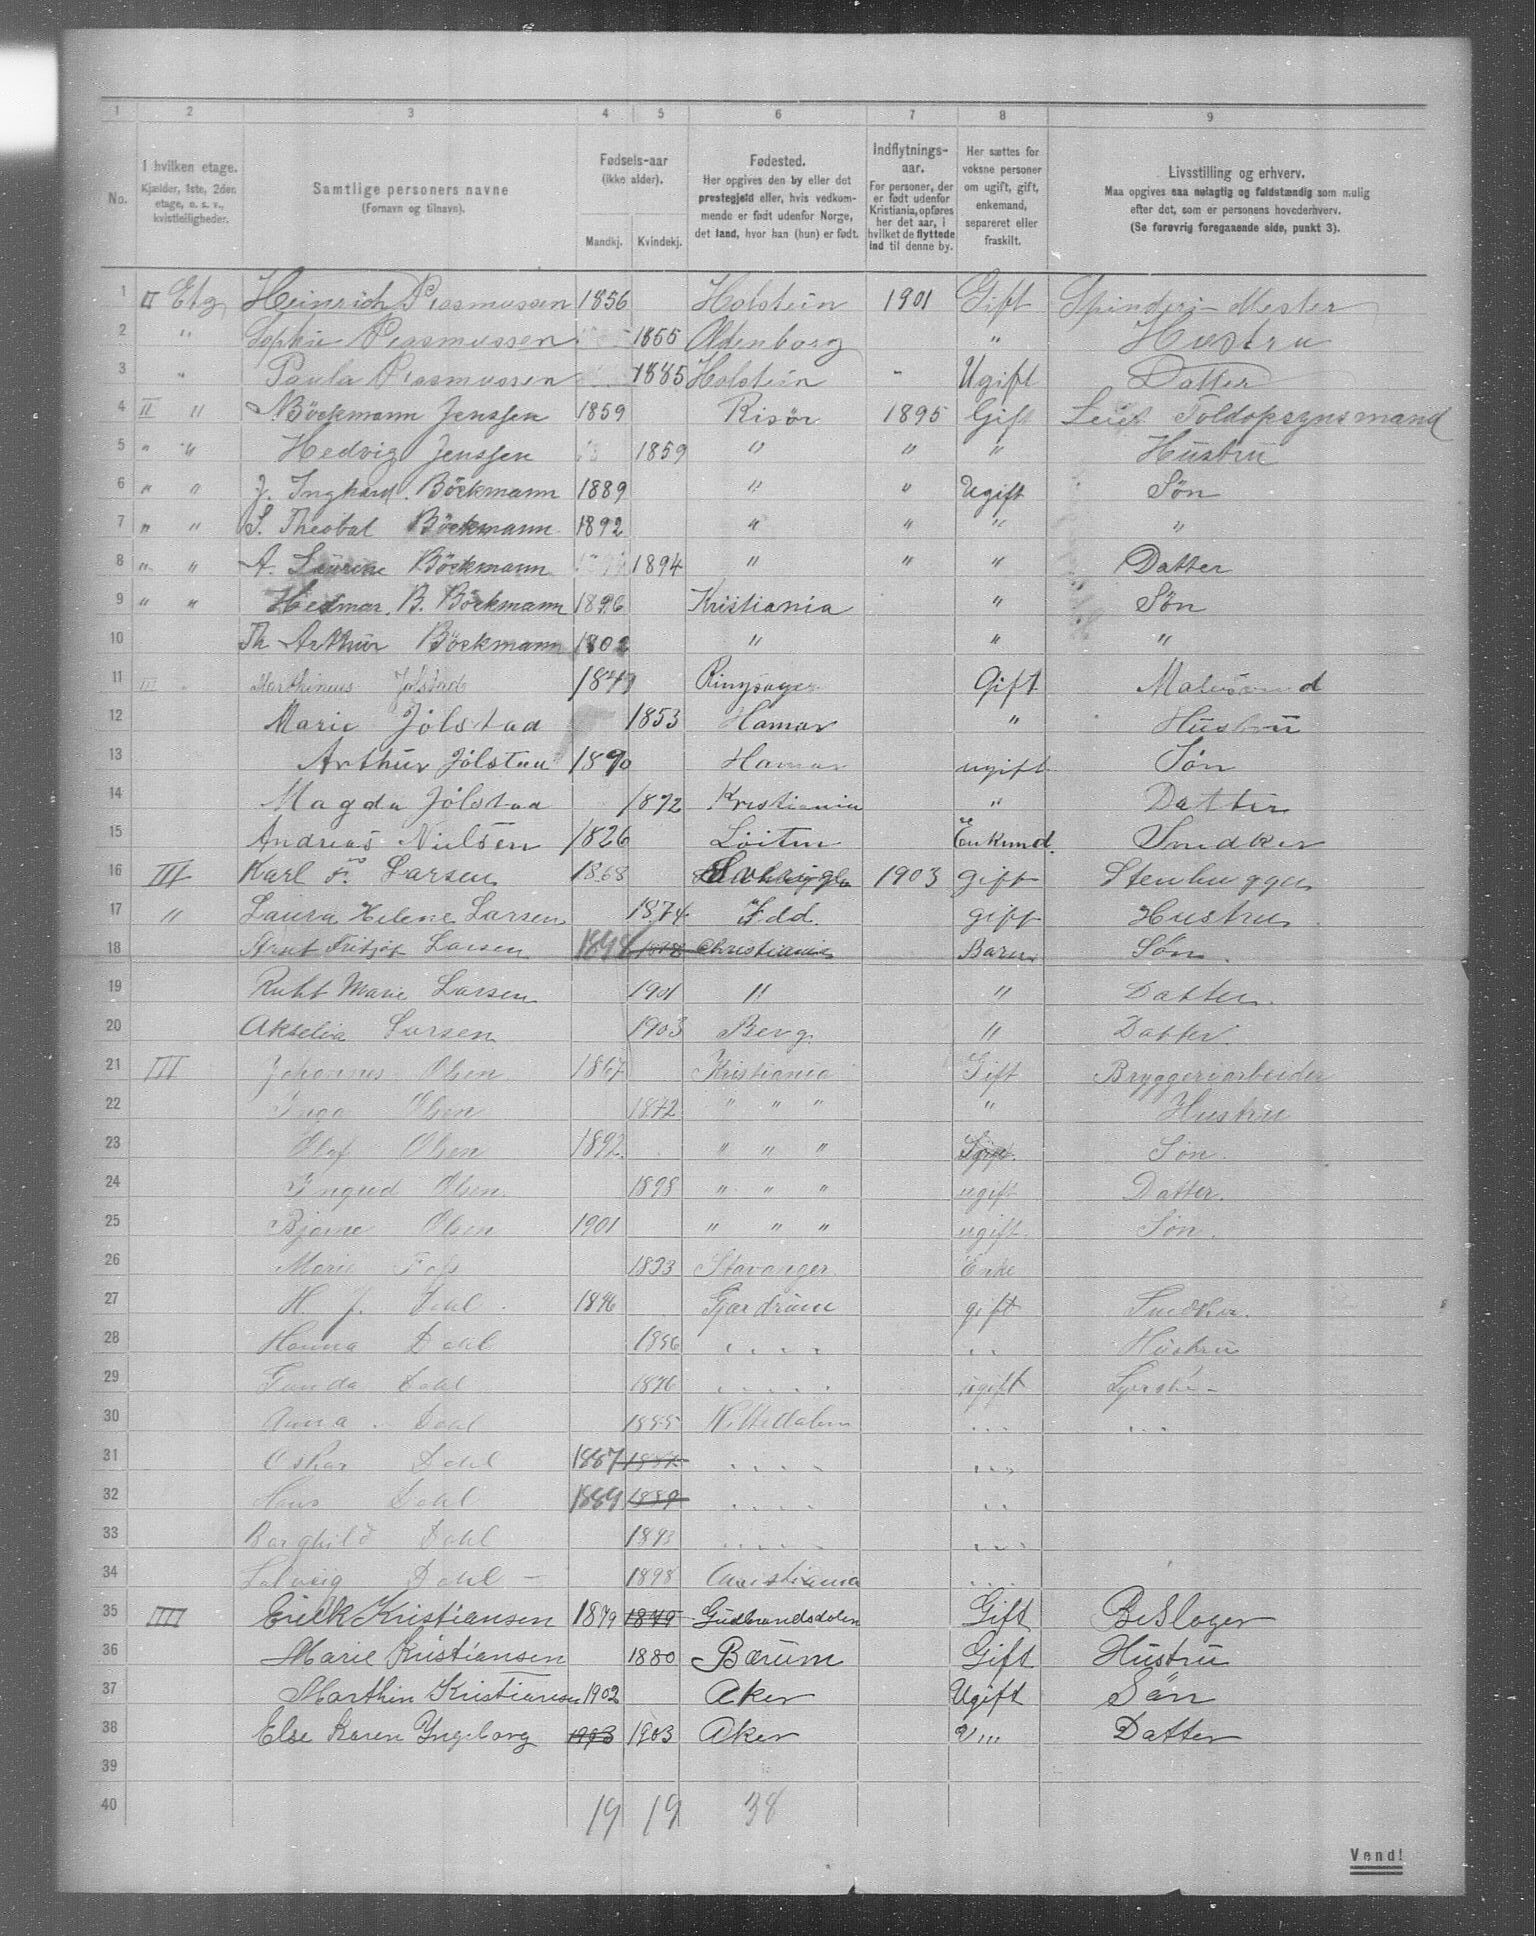 1 2 3 4 5 6 7 8 9
No. I hvilken etage. Kjælder, 1ste, 2den etage, o. s. v., kvistleiligheder. Samtlige personers navne (Fornavn og tilnavn). Fødsels-aar (ikke alder). Mandkj. Kvindekj. Fødested. Her opgives den by eller det prestegjeld eller, hvis vedkommende er født udenfor Norge, det land, hvor han (hun) er født. Indflytnings-aar. For personer, der er født udenfor Kristiania, opføres her det aar, i hvilket de flyttede ind til denne by. Her sættes for voksne personer om ugift, gift, enkemand, separeret eller fraskilt. Livsstilling og erhverv. Maa opgives saa nøiagtig og fuldstændig som mulig efter det, som er personens hovederhverv. (Se forøvrig foregaaende side, punkt 3).
1 II Etg Heinrich Rasmussen 1856 Holstein 1901 Gift Spinderi-Mester
2 " Sophie Rasmussen 1855 Oldenborg " Hustru
3 " Paula Rasmussen 1885 Holstein " Ugift Datter
4 II " Böckmann Jenssen 1859 Risör 1895 Gift Toldopsynsmand
5 " " Hedvig Jenssen 1859 " " " Hustru
6 " " J. Inghard. Böckmann 1889 " " Ugift Søn
7 " " S. Theobal Böckmann 1892 " " " "
8 " " A. Laurine Böckmann 1894 " " " Datter
9 " " Hedmar. B. Böckmann 1896 Kristiania " Søn
10 Th Arthur Böckmann 1902 " " "
11 III " Marthinus Jølstad 1849 Ringsager Gift
12 Marie Jølstad 1853 Hamar " Hustru
13 Arthur Jølstad 1890 Hamar ugift Søn
14 Magda Jølstad 1892 Kristiania " Datter
15 Andreas Nielsen 1826 Løiten Enkemd. Snedker
16 III Karl F. Larsen 1868 Sverige 1903 gift Stenhugger
17 " Laura Helene Larsen 1874 Idd. gift Hustru
18 Arnt Fritjof Larsen 1898 1898 Christiania Barn Søn.
19 Ruht Marie Larsen 1901 " " Datter.
20 Akselia Larsen 1903 Berg. " Datter.
21 III Johannes Olsen 1867 Kristiania Gift Bryggeriarbeider
22 Inga Olsen 1872 " " " " Hustru
23 Olaf Olsen 1892. " " " Søn.
24 Ingrid Olsen. 1898 " " " ugift Datter.
25 Bjarne Olsen 1901 " " " ugift. Søn.
26 Marie 1833 Stavanger. Enke
27 H. J. Dahl. 1846 Gjærdrum gift Snedker.
28 Hanna Dahl 1856 " " " " " " Hustru
29 Gunda Dahl 1876 " " " " " ugift Syerske
30 Anna. Dahl 1885 Nittedalen " " " " " "
31 Oskar Dahl 1887 1887 " " " " " " "
32 Hans Dahl 1889 1889 " " " " " "
33 Borghild Dahl 1893 " " " " " " " "
34 Solveig Dahl 1898 Christiania " " "
35 IIII Erick Kristiansen 1879 1879 Gudbrandsdalen Gift Beslager
36 Marie Kristiansen 1880 Bærum Gift Hustru
37 Marthin Kristiansen 1902 Aker Ugift Søn
38 Else Karen Yngeborg 1903 1903 Aker U,,, Datter
39
40 19 19 38
Vend!